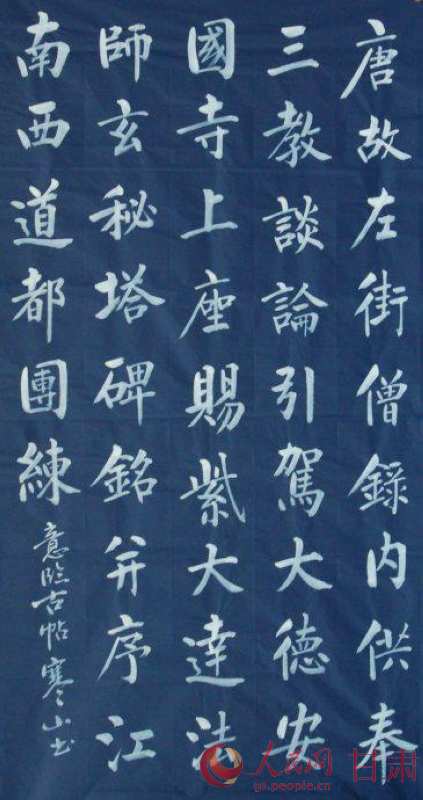 唐故左街僧錄内供奉
三教談論引駕大德安
國寺上座賜紫大達法
師玄秘塔碑銘并序江
南西道都團練
意臨古帖寒山书
人民网 甘肃
gs.people.cn